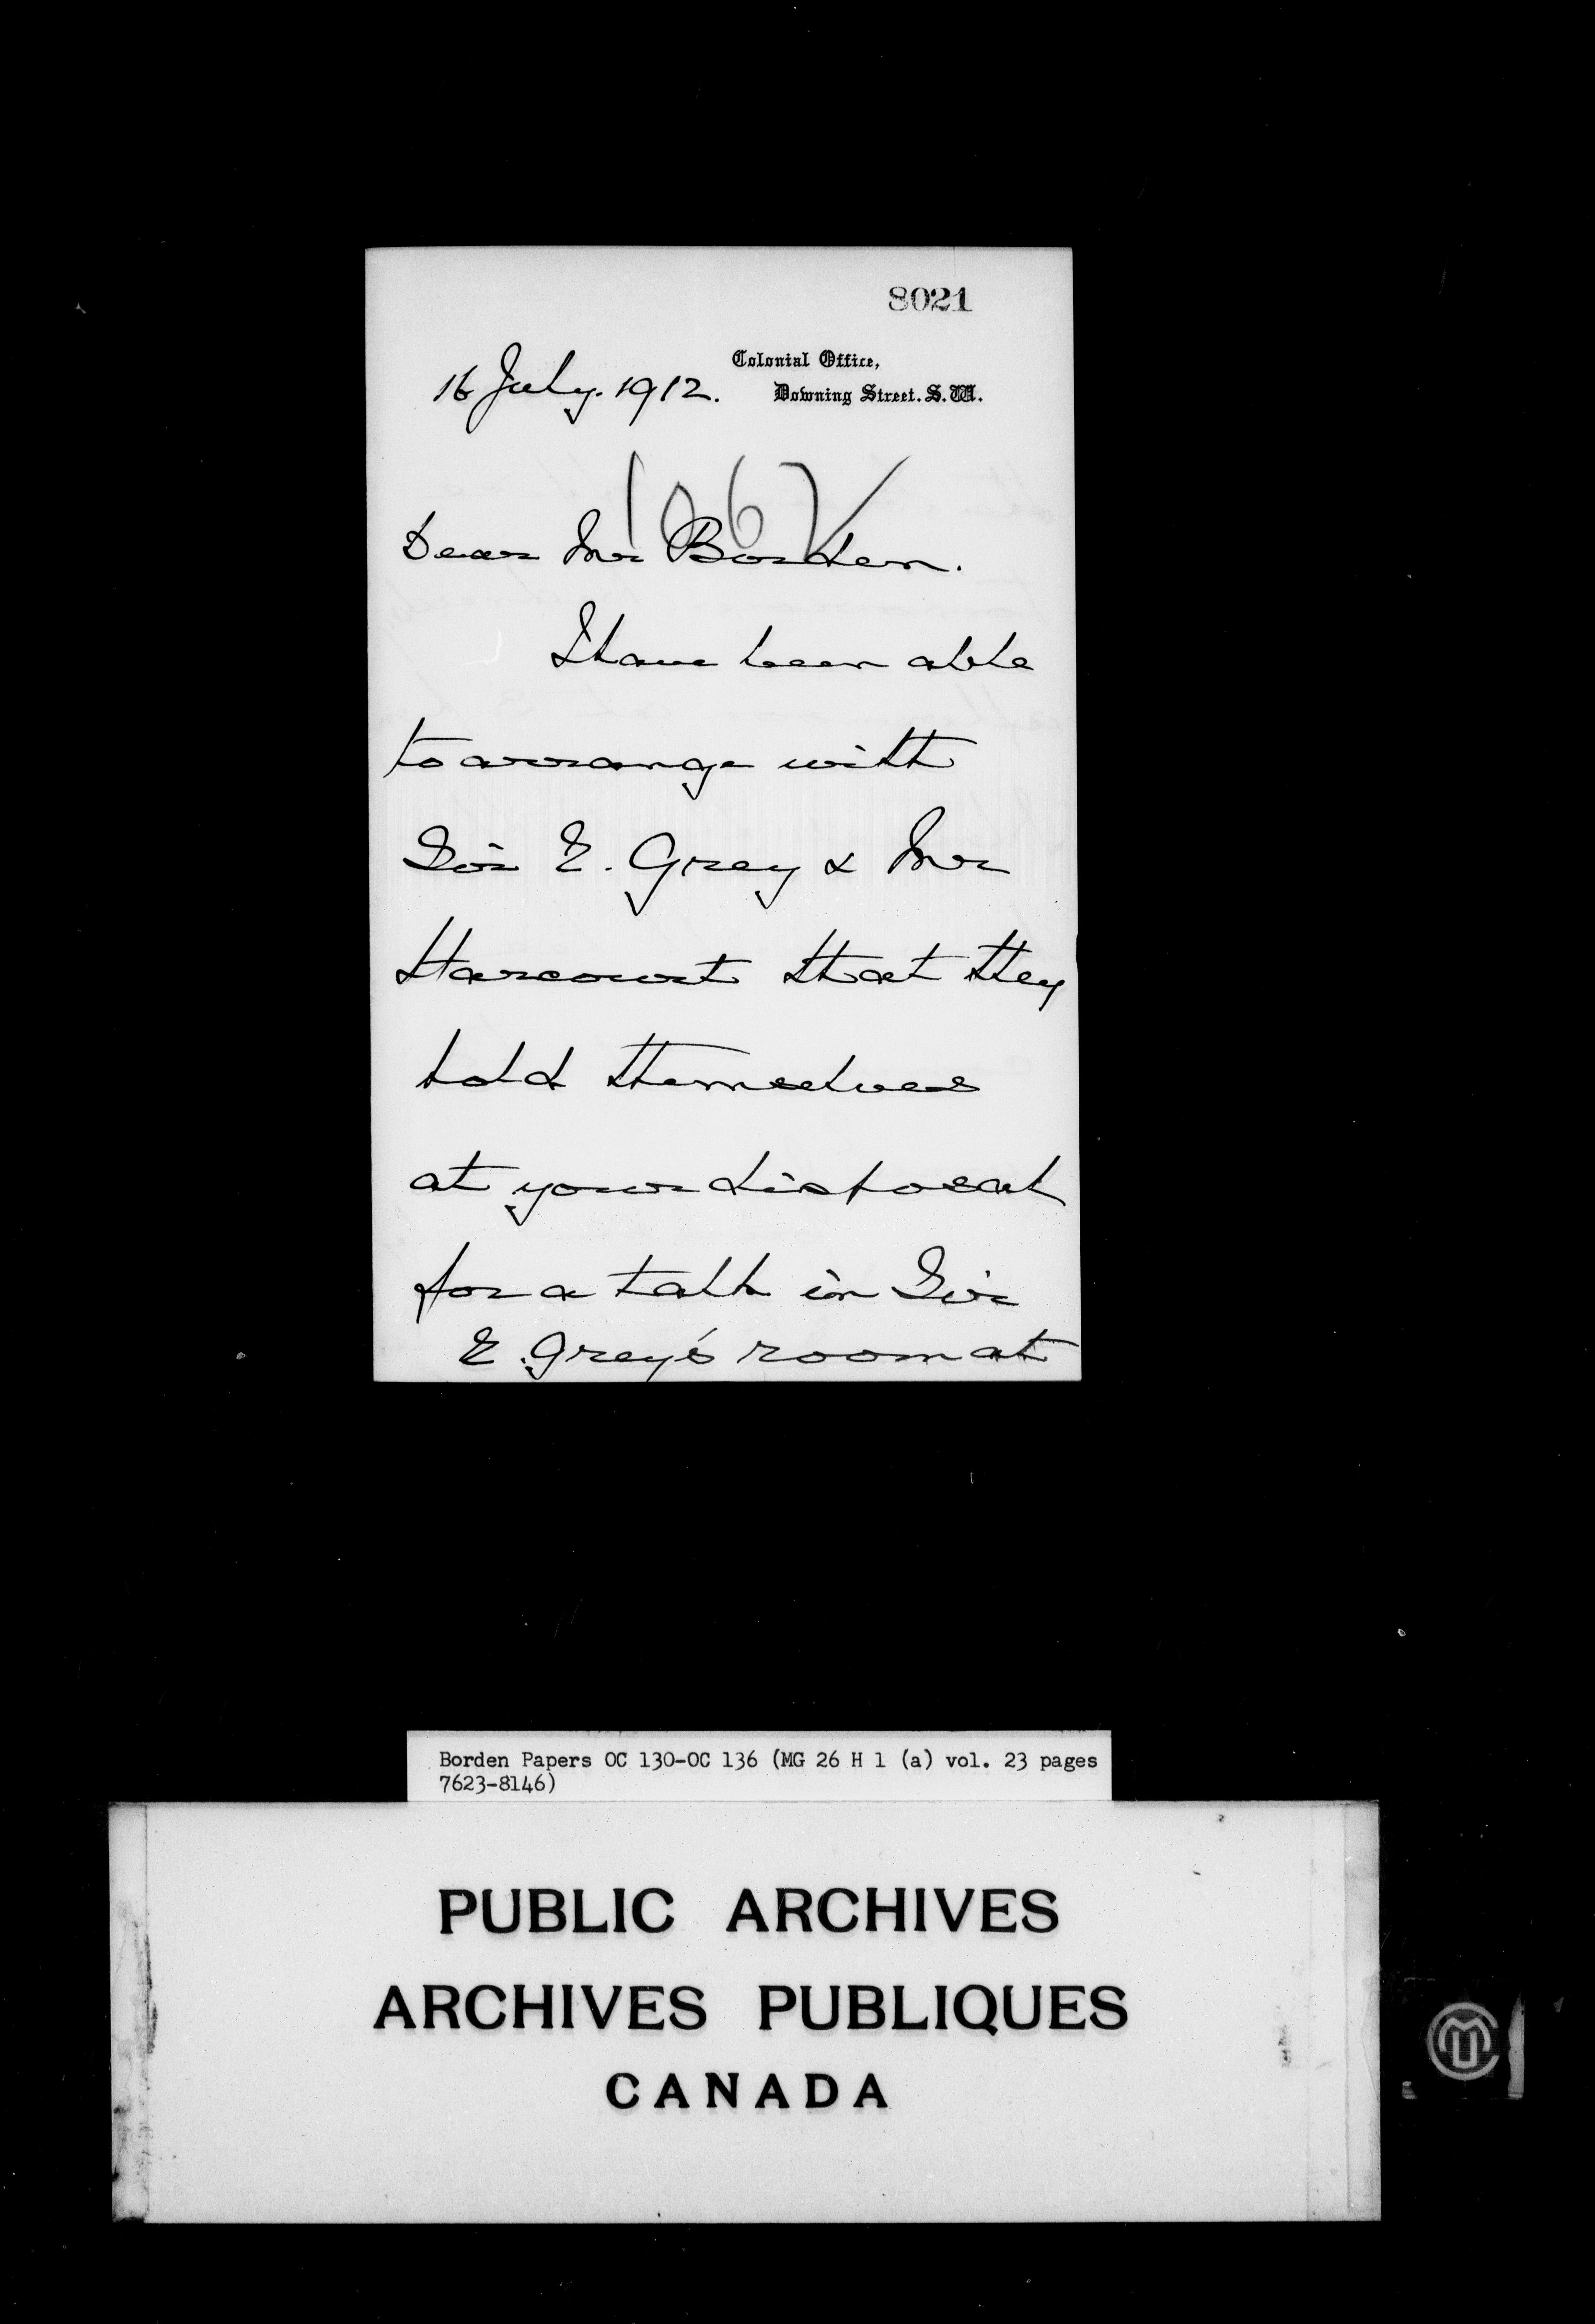 8021
Colonial Office,
16 July. 1912. Downing Street. S.W.
1067
Dear Mr Borden.
I have been able
to arrange with
Sir E. Grey & Mr
Harcourt that they
hold themselves
at your disposal
for a talk in Sir
E. Grey's room at
Borden Papers OC 130-OC 136 (MG 26 H 1 (a) vol. 23 pages
7623-8146)
PUBLIC ARCHIVES
ARCHIVES PUBLIQUES
CANADA